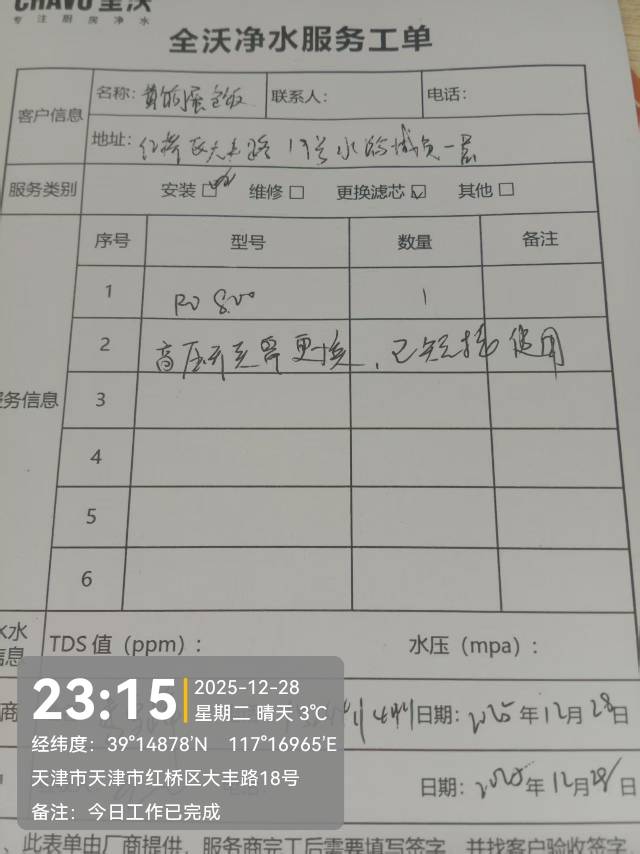 CHAVO 全沃
专注厨房净水
全沃净水服务工单
客户信息
名称: 黄的蛋包饭 联系人: 电话:
地址: 红桥区大丰路18号水游城负一层
服务类别 安装 维修 更换滤芯 其他
序号 型号 数量 备注
1 RO 800 1
2 高压开关需更换, 已短接使用
务信息 3
4
5
6
水
信息 TDS 值（ppm）: 水压（mpa）:
商 日期: 2025年12月28日
日期: 2025年12月28日
23:15 2025-12-28
星期二 晴天 3℃
经纬度: 39°14878'N 117°16965'E
天津市天津市红桥区大丰路18号
备注: 今日工作已完成
、此表单由厂商提供，服务商完工后需要填写签字，并找客户验收签字，